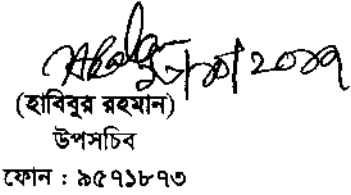 (হাবিবুর রহমান)
উপসচিব
ফোন : ৯৫৭১৮৭৩